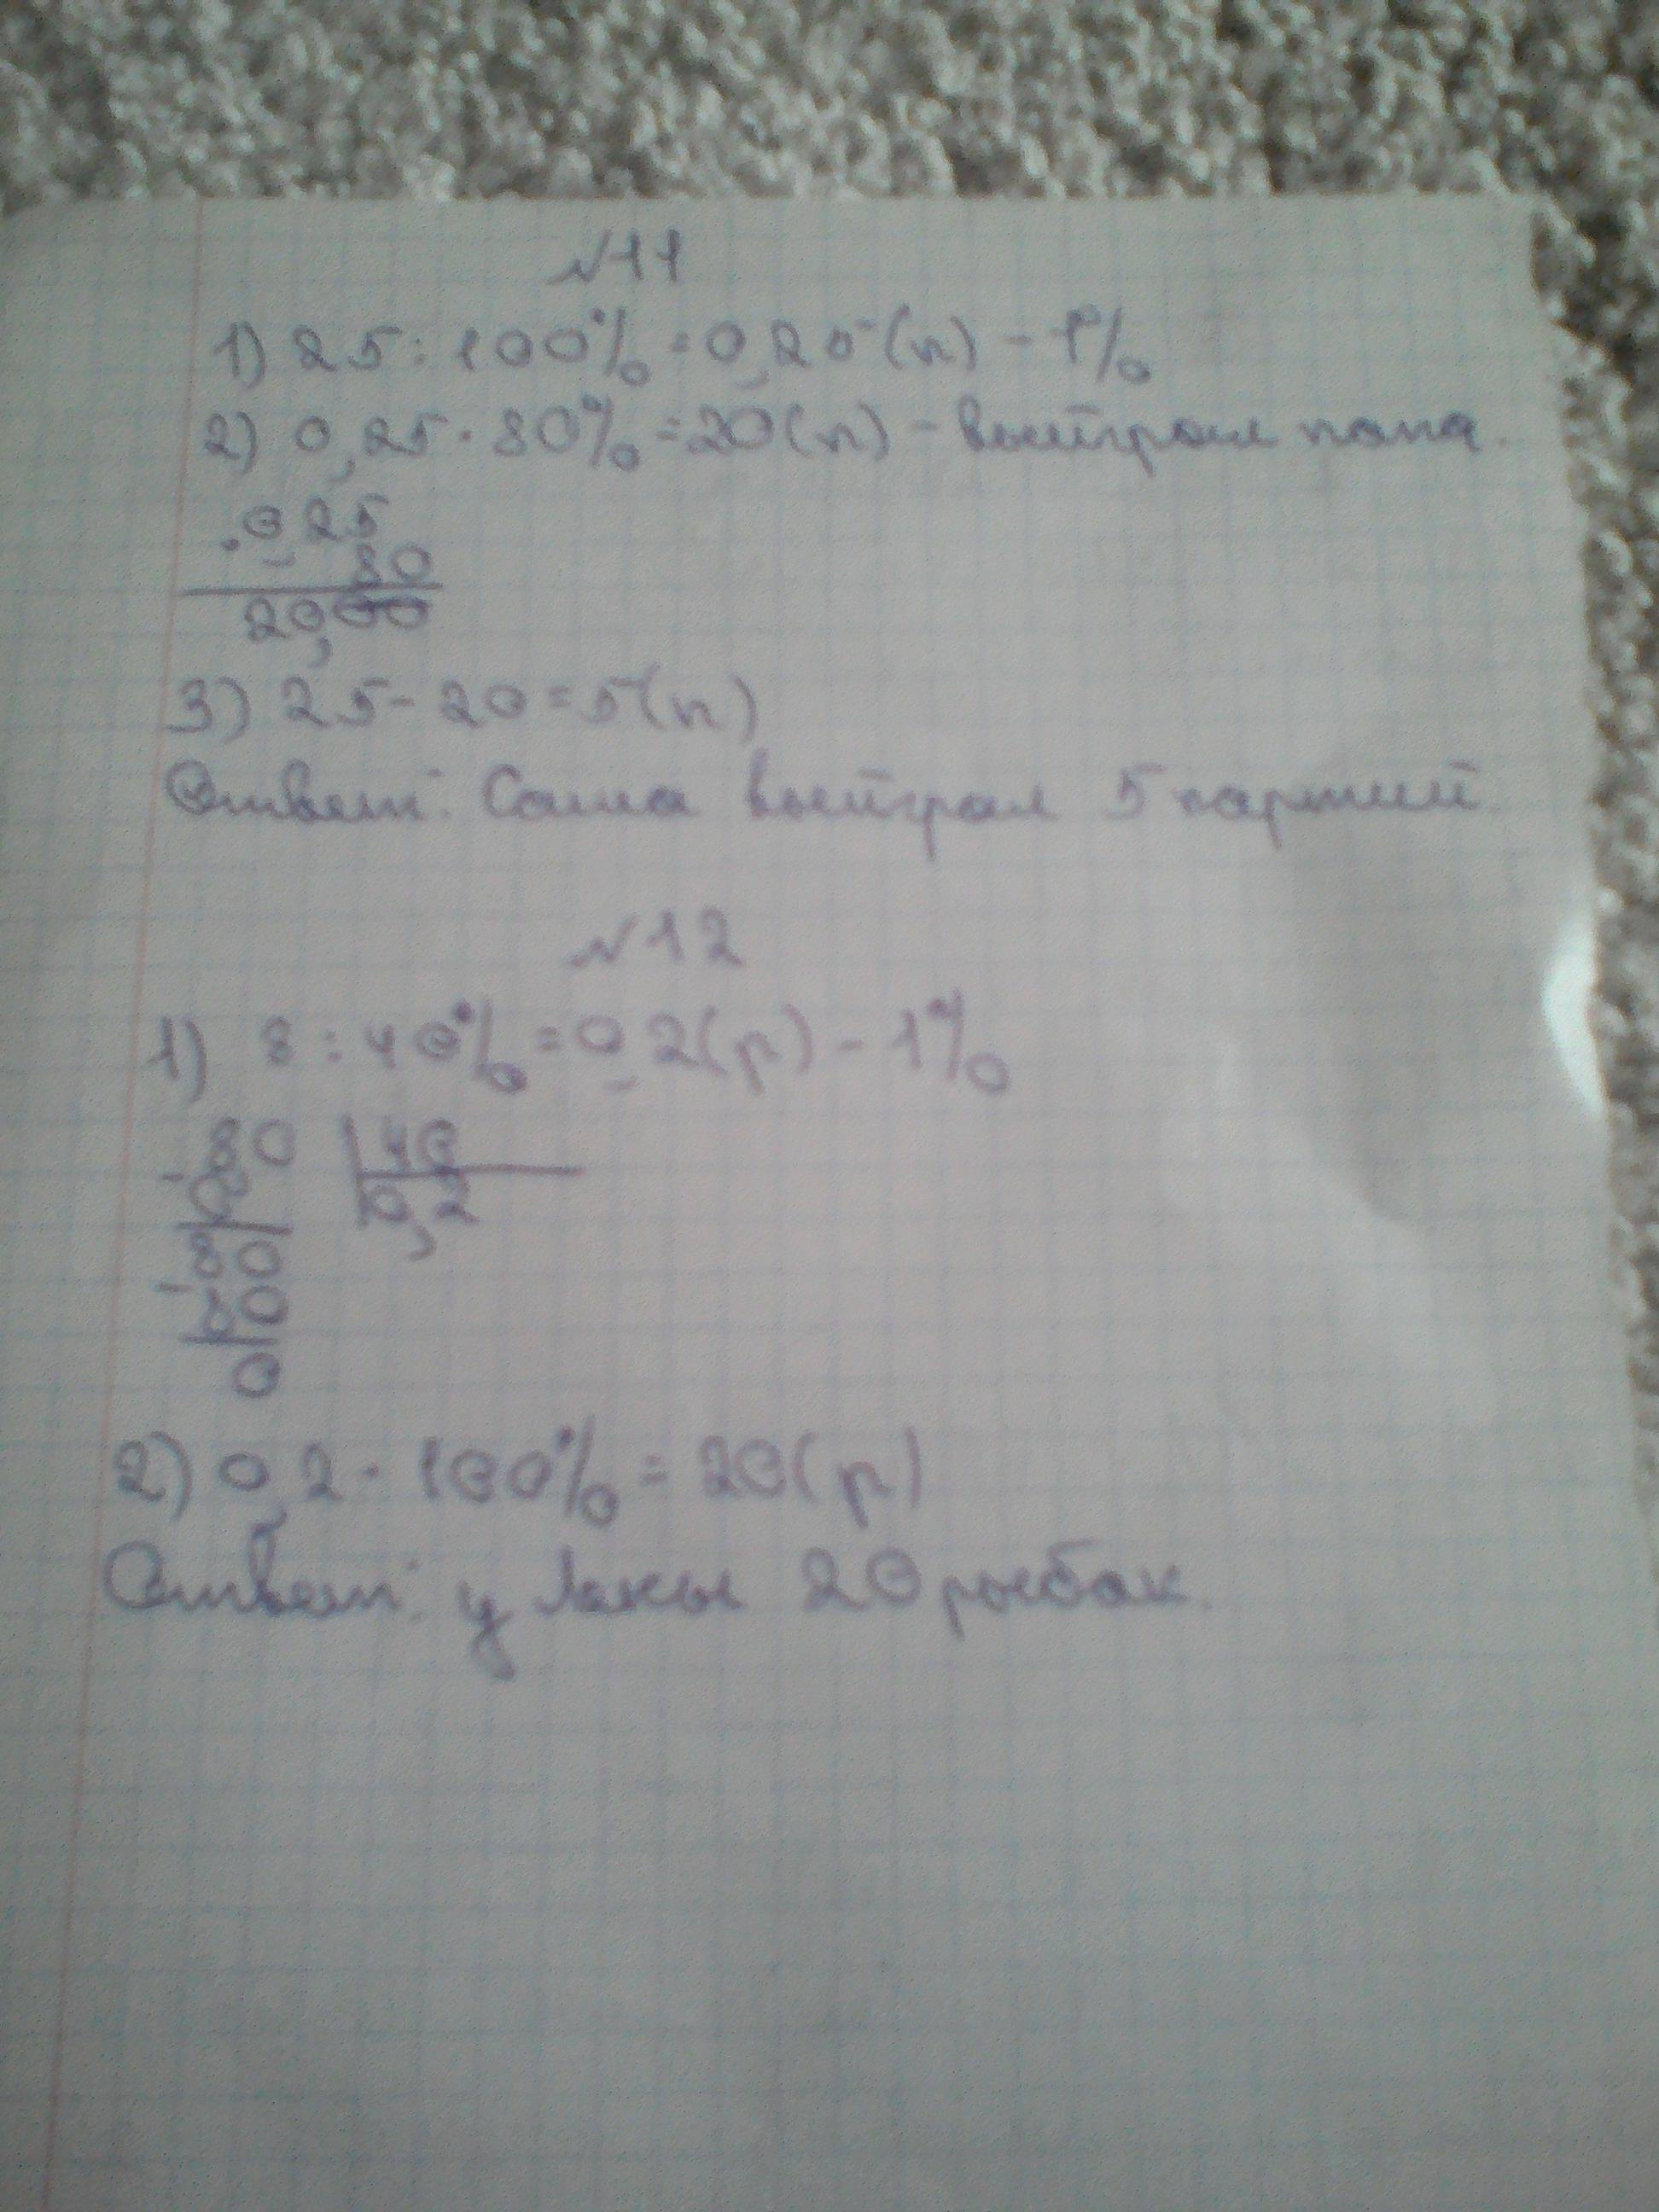 №11
1) 25 : 100% = 0,25 (п) - 1%
2) 0,25 · 80% = 20 (п) - выйграл папа.
· 0,25
80
20,00
3) 25 - 20 = 5 (п)
Ответ: Саша выйграл 5 партий.
№12
1) 8 : 40% = 0,2 (р) - 1%
80 40
0 0,2
80
80
0
2) 0,2 · 100% = 20 (р)
Ответ: у 20 рыбак.